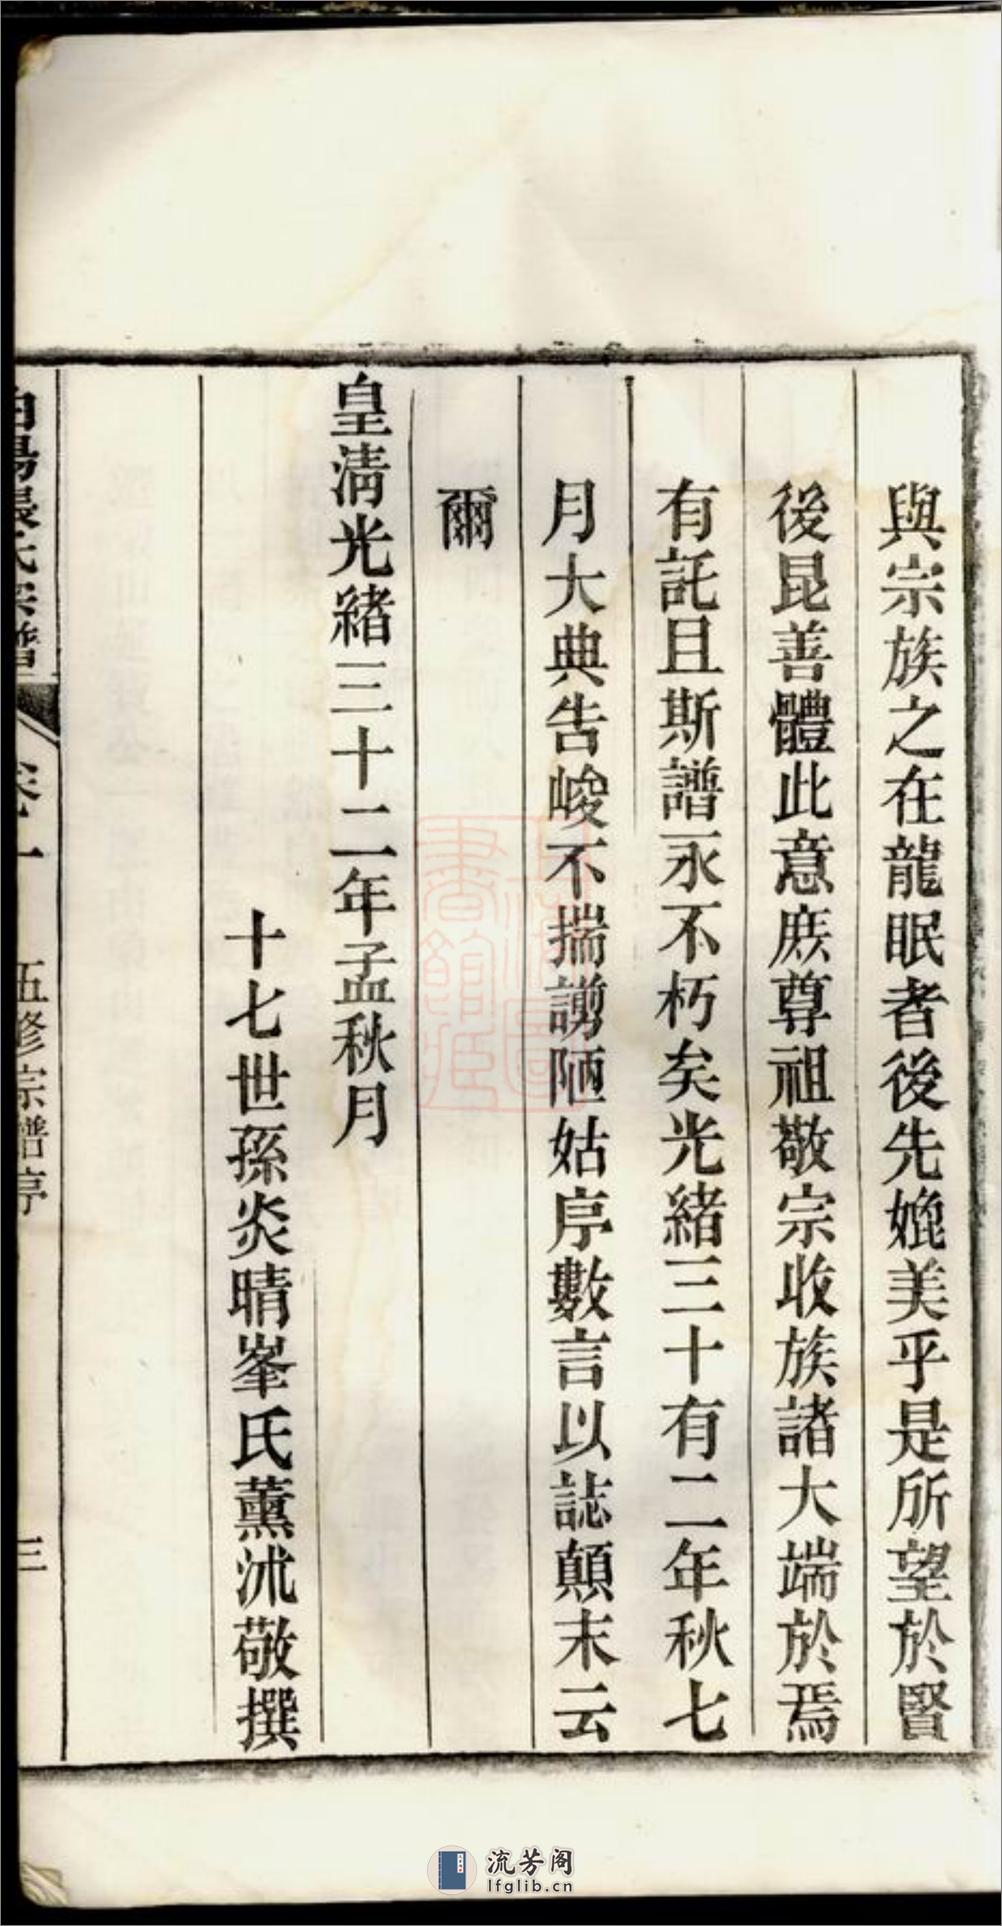 與宗族之在龍眠者後先媲美乎是所望於賢
後昆善體此意庶尊祖敬宗收族諸大端於焉
有託且斯譜永不朽矣光緒三十有二年秋七
月大典告峻不揣謭陋姑序數言以誌顛末云
爾
皇淸光緒三十二年孟秋月
十七世孫炎晴峯氏薰沐敬撰
張氏宗譜
卷一
五修宗譜序
三
流芳阁
lfglib.cn